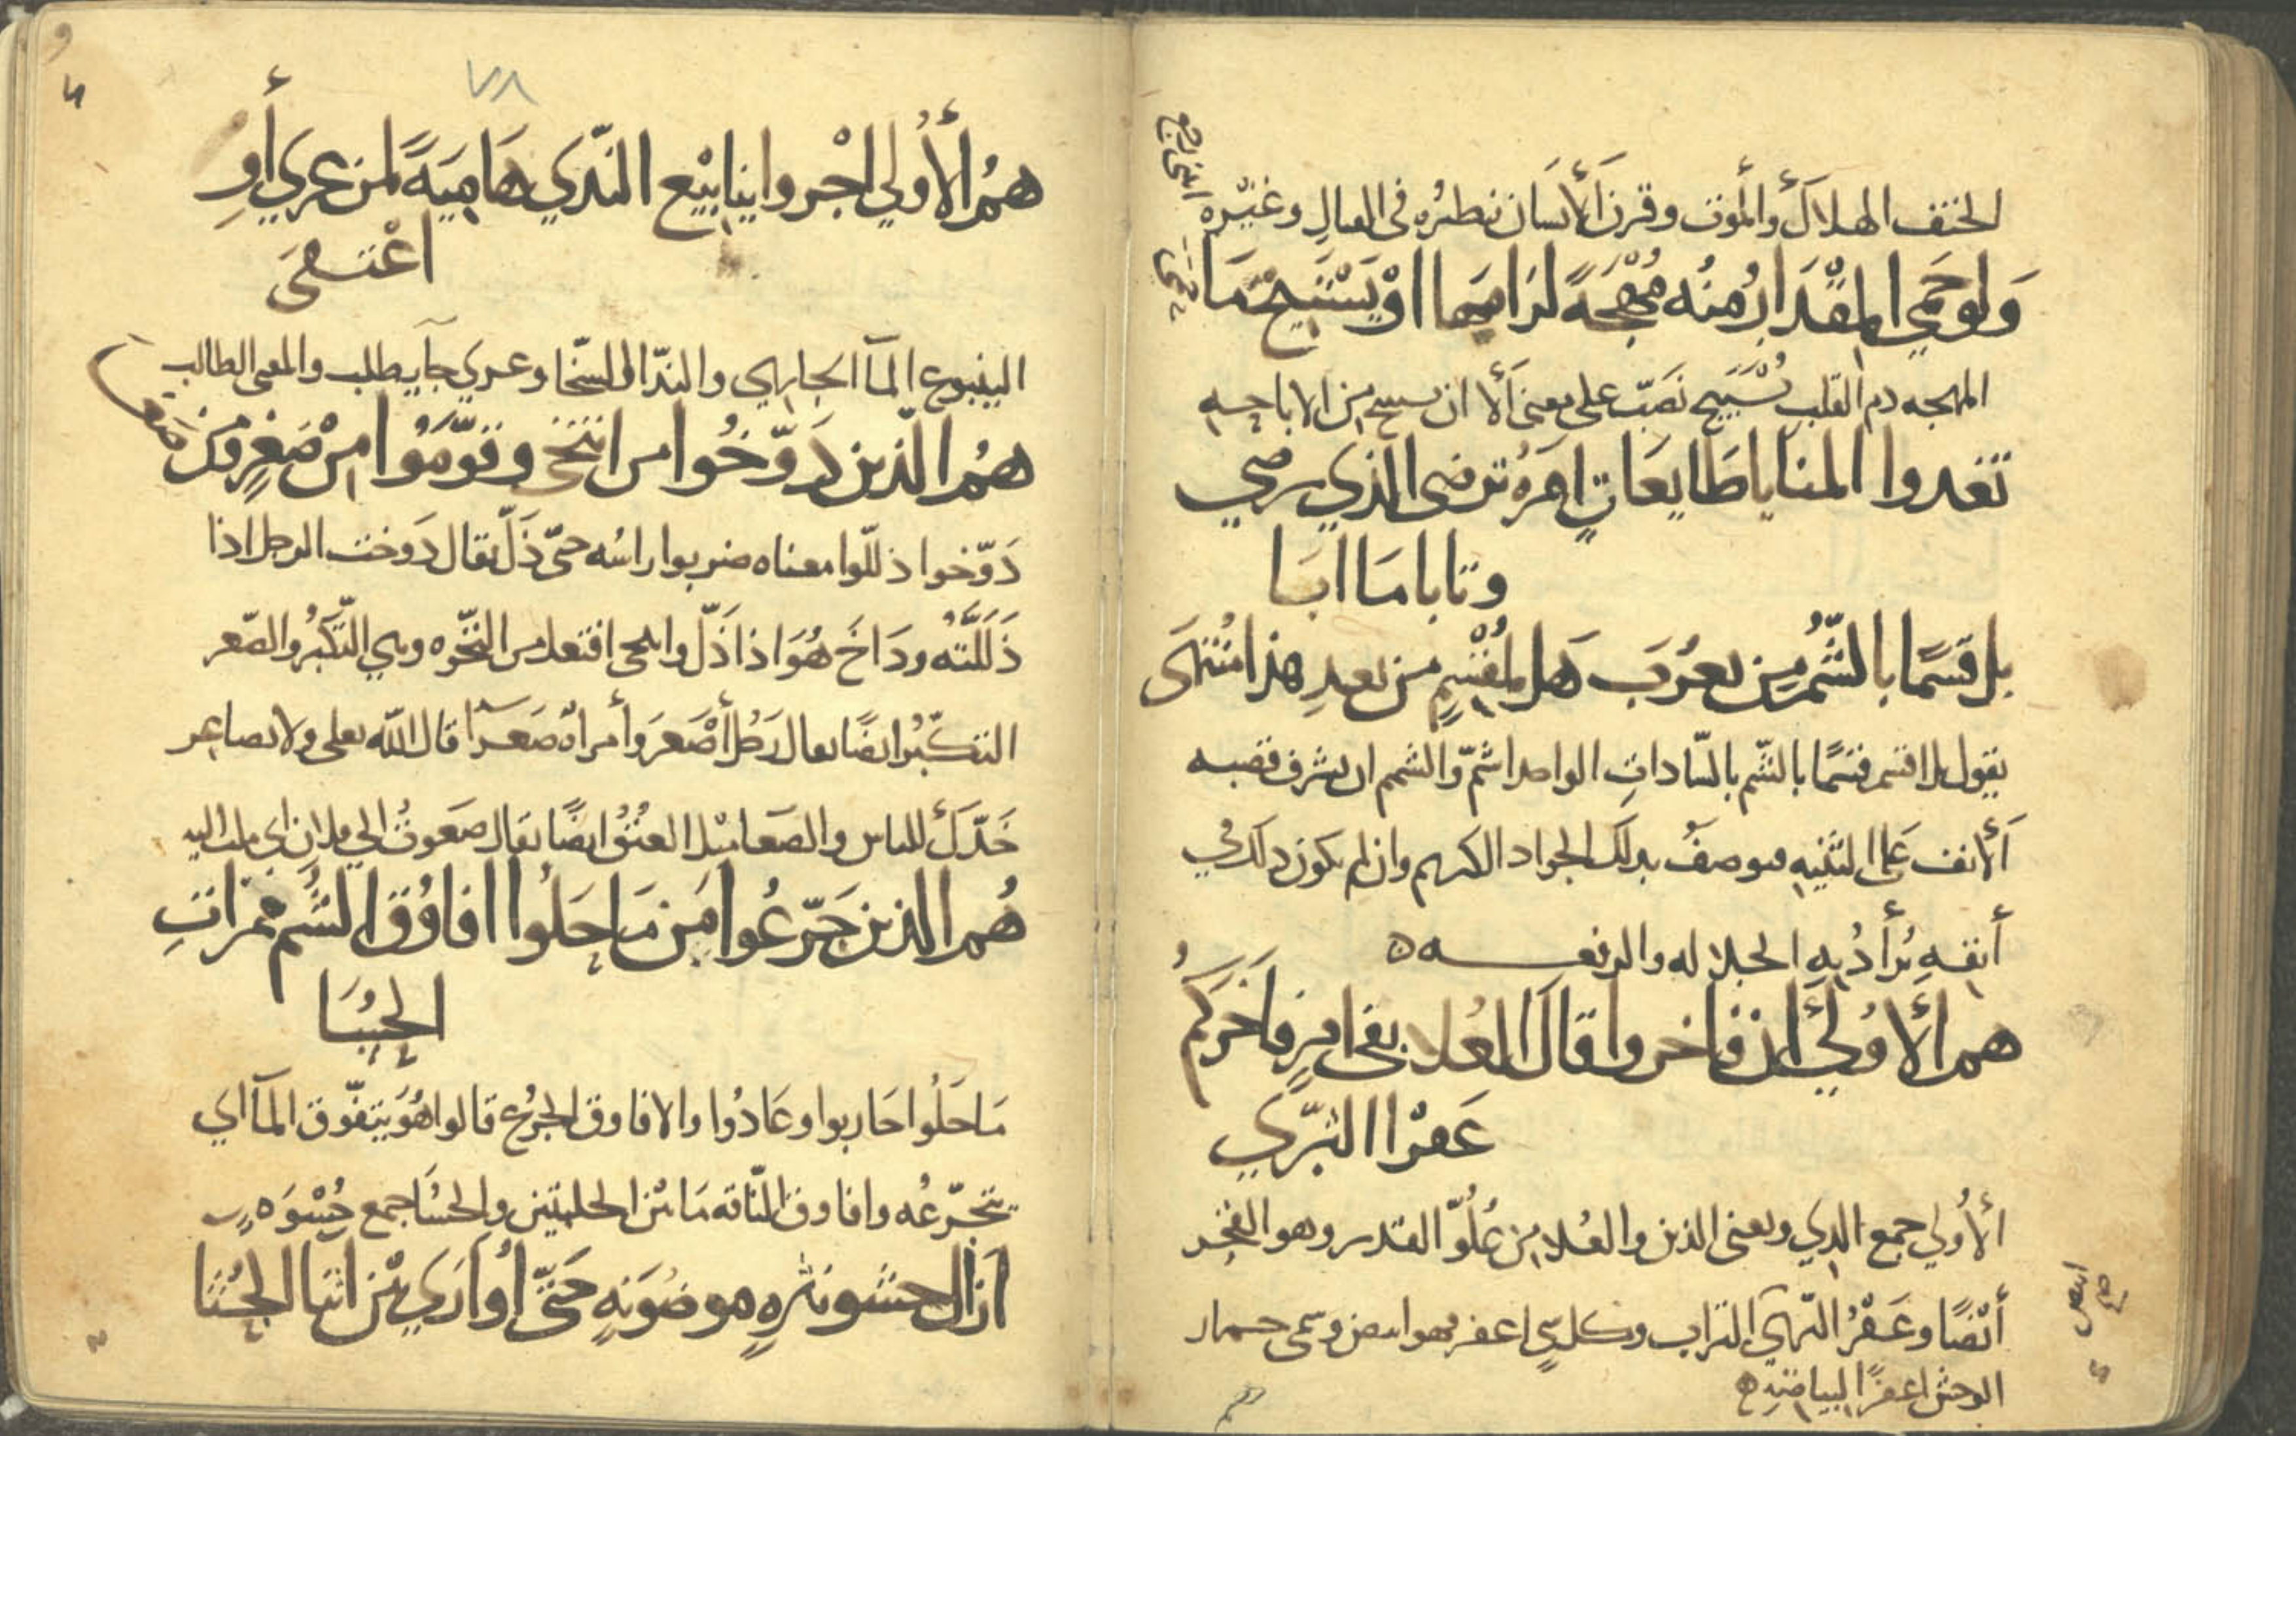 الحتف الهلاك والموت وقرن الأنسان نظيره في القتال وغيره
ولو حمى المقدار منه مهجة لرامها او يستبيح ما حمى
المهجه دم القلب نصب على معنى ألا ان من الاباحه
تغدوا المنايا طايعات امره ترضى الذي يرضى
وتابا ما ابا
بل قسما بالشم من يعرب هل لمقسم من بعد هذا منتهى
يقول بلا اقسم قسما بالشم بالسادات الواحد اشم والشمم ان يشرف قصبه
الأنف على فيوصف بذلك الجواد الكريم وان لم يكون ذلك في
أنفه يرأد به الجلاله والرفعـــه ه
هم الأولى أن فاخروا قال العلا بفي امرئ فاخركم
عفر الثرى
الأولي جمع الذي ومعنى الذين والعلا من علو القدر وهو الفخر
أيضا وعفر الثرى التراب وكل شي اعفر فهو ابيض وسمي حمار
الوحش اعفرا لبياضه ه
هم الأولي اجروا ينابيع الندي هامية لمن عري أو
اعتفى
الينبوع المآ الجاري والندا السخا وعري جآ يطلب والمعتفي الطالب
هم الذين دوخوا من انتخى وقوموا من صعر ومن صغا
دوخوا ذللوا معناه ضربوا راسه حتى ذل يقال دوخت الرجل اذا
ذللته وداخ هو اذا ذل وانتخى افتعل من النخوه وهي التكبر والصعر
التكبر ايضا يقال رجل أصعر وأمرأه صعرآ قال الله تعلى ولا تصاعر
خدك للناس والصغا ميل العنق ايضا يقال صغوت الي فلان اي ملت اليه
هم الذين جرعوا من ماحلوا افاوق الضيم ممرات
الحسا
ماحلوا حاربوا وعادوا والافاوق الجرع قالوا هو يتفوق المآ اي
يتجرعه وافاوق الناقه ما بين الحلبتين والحسا جمع حسوه
ازال حشو نثره موضونه حتى أوارى بين اثنا الجثا